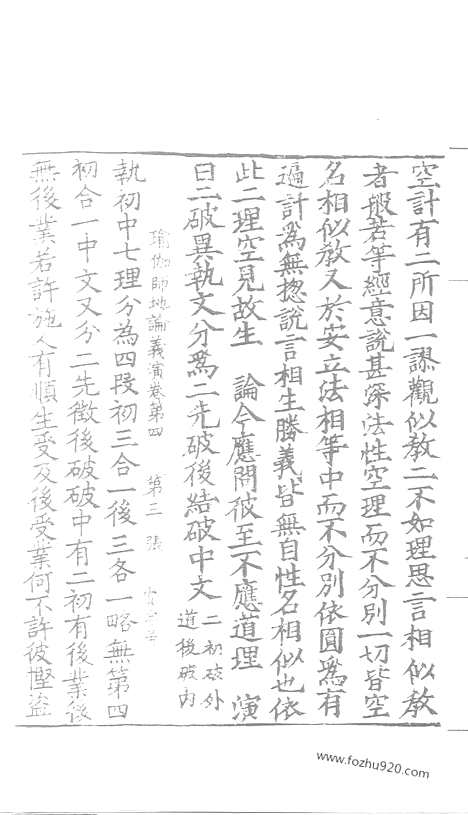 空計有二所因一謬觀似教二不如理思言相似教
者般若等經意說甚深法性空理而不分別一切皆空
名相似教又於安立法相等中而不分別依圓為有
遍計為無惣說言相生勝義皆無自性名相似也依
此二理空見故生 論今應問彼至不應道理 演
曰二破異執文分為二先破後結破中文二初破外道後破內
瑜伽師地論義演卷第四 第三張
執初中七理分為四段初三合一後三各一略無第四
初合一中文又分二先徵後破破中有二初有後業後
無後業若許施人有順生受及後受業何不許彼慳盜
www.fozhu920.com